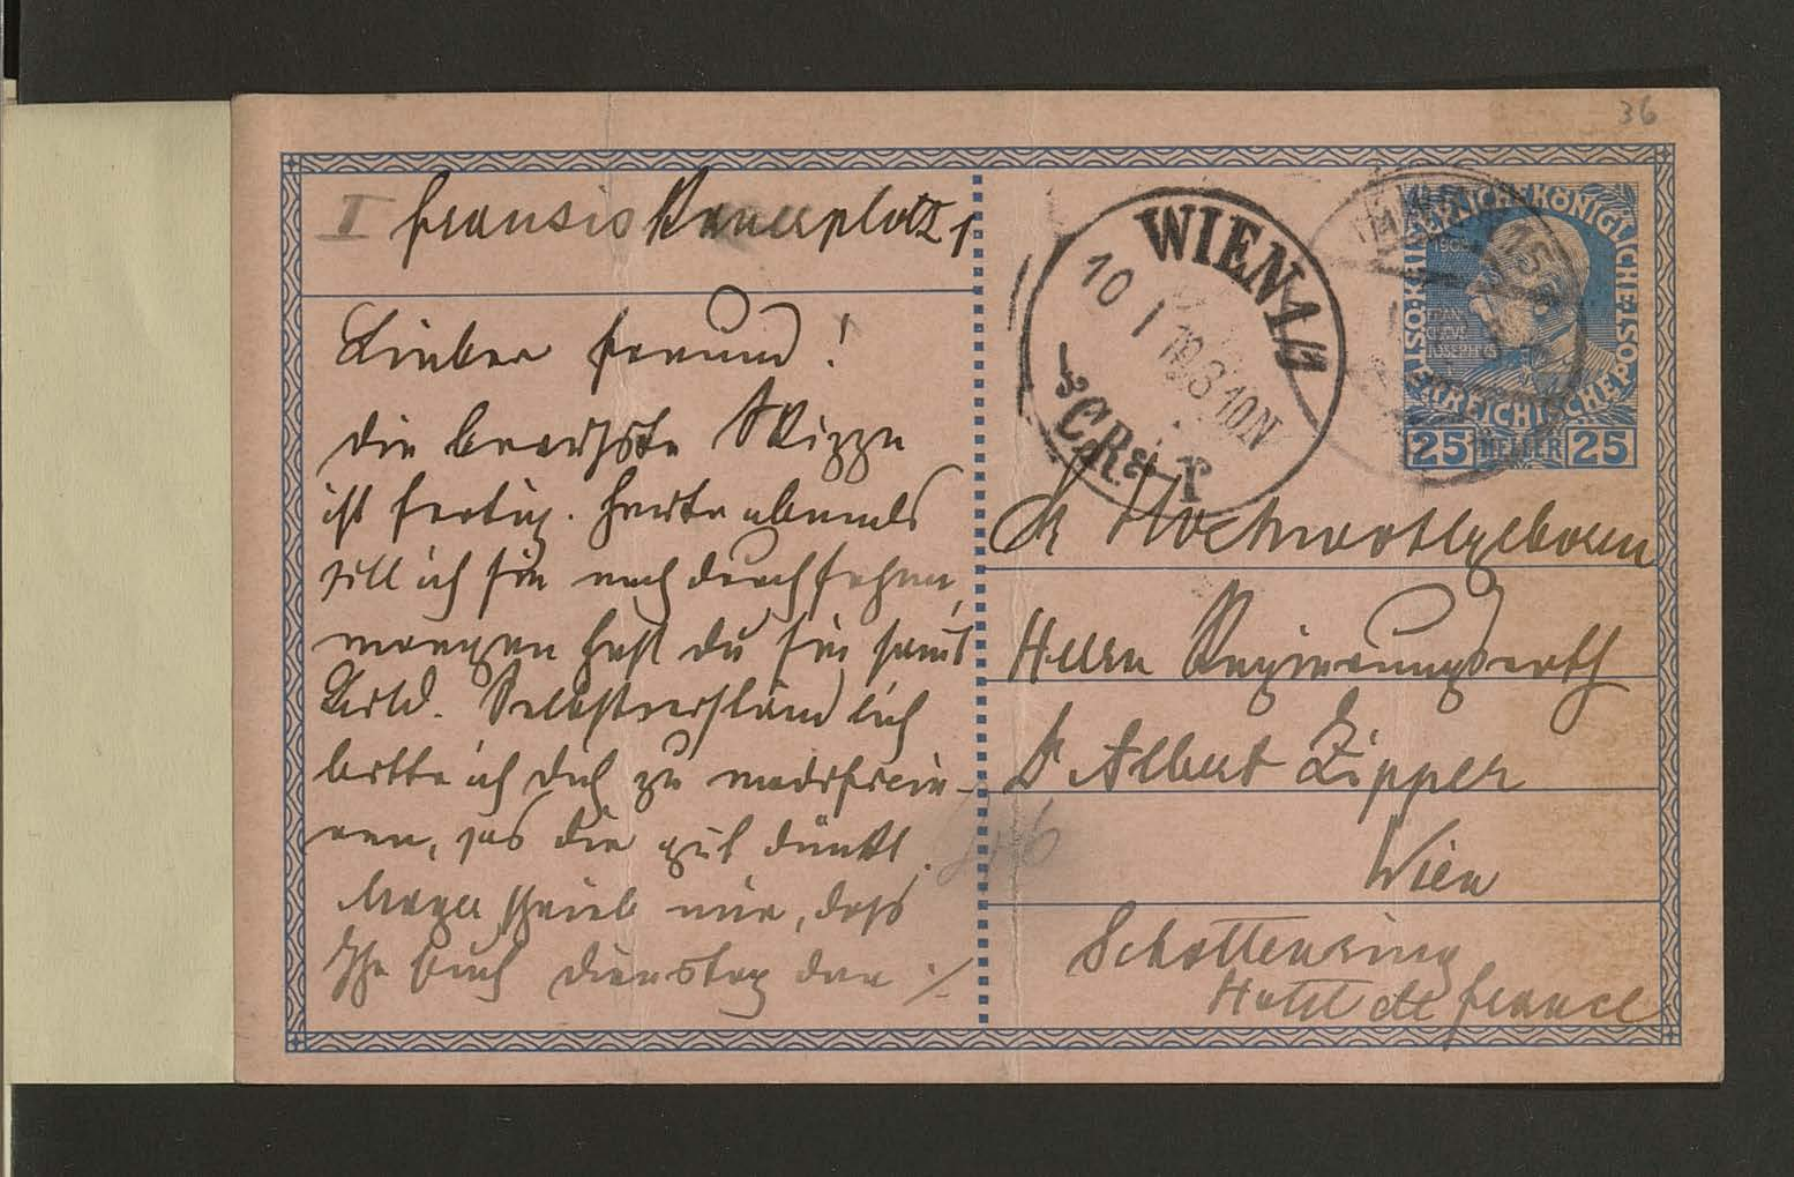 36
I Franziskanerplatz 1
Lieber Freund!
die bewußte Skizze
ist fertig. Heute abends
will ich sie noch durchsehen,
morgen hast du sie samt
Bild. Selbstverständlich
bitte ich dich zu modificie-
ren, was dir gut dünkt.
Mayer schrieb mir, dass
Ihr Euch Dienstag den ·/.
WIEN 1/1
10 I 10 8 10N
KAISERLICH-KÖNIGLICHE
ÖSTERREICHISCHE POST
1908
FRANCISCVS JOSEPH
25 HELLER 25
Sr Hochwohlgeboren
Herrn Regierungsrath
Dr Albert Zipper
Wien
Schottenring
Hotel de France